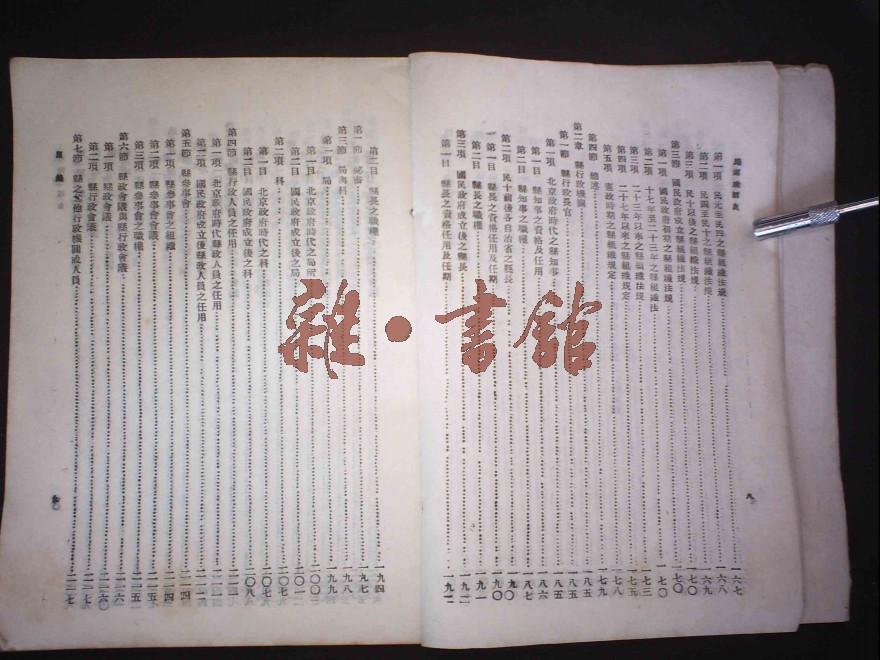 第一項 民元至民四之縣組織法規 一六七
第二項 民四至民十之縣組織法規 一六八
第三項 民十以後之縣組織法規 一六九
第三節 國民政府成立縣組織法規 一七〇
第一項 國民政府初期之縣組織法規 一七〇
第二項 十七年至二十三年之縣組織法 一七三
第三項 二十三年以來之縣組織法規 一七五
第四項 二十七年以來之縣組織規定 一七八
第五項 憲政時期之縣組織規定 一七九
第四節 總述 一八五
第二章 縣行政機關 一八五
第一節 縣行政長官 一八五
第一項 北京政府時代之縣知事 一八六
第一目 縣知事之資格及任用 一八六
第二目 縣知事之職權 一八七
第二項 民十前後各自治省之縣長 一九〇
第一目 縣長之資格任用及任期 一九〇
第二目 縣長之職權 一九一
第三項 國民政府成立後之縣長 一九二
第一目 縣長之資格任用及任期 一九二
八
第二目 縣長之職權 一九四
第二節 秘書 一九七
第三節 局與科 一九八
第一項 局 一九九
第一目 北京政府時代之局所
第二目 國民政府成立後之局
第二項 科
第一目 北京政府時代之科
第二目 國民政府成立後之科 二〇八
第四節 縣行政人員之任用
第一項 北京政府時代縣政人員之任用
第二項 國民政府成立後縣政人員之任用
第五節 縣參事會 二一四
第一項 縣參事會之組織 二一四
第二項 縣參事會會議 二一五
第三項 縣參事會之職權
第六節 縣政會議與縣行政會議 二一六
第一項 縣政會議
第二項 縣行政會議
第七節 縣之其他行政機關或人員
目錄
雜·書館